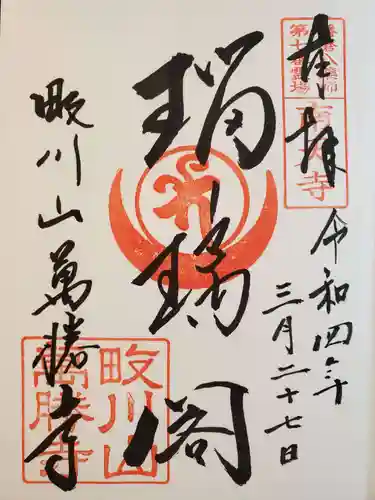 奉拝
令和四年
三月二十七日
瑠璃閣
畈川山萬勝寺
第七番霊場
畈川山
萬勝寺